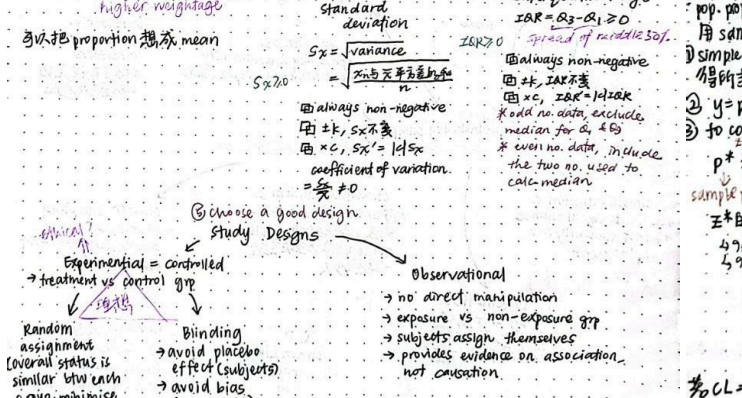 higher weightage
可以把 proportion 想成 mean
standard
deviation
Sx = √variance
Sx ≥ 0
n
always non-negative
±k, Sx不变
×c, Sx' = |c|Sx
coefficient of variation
≠ 0
IQR = Q3 - Q1 ≥ 0
IQR ≥ 0
spread of middle 50%
always non-negative
±k, IQR不变
×c, IQR' = |c|IQR
* odd no. data, exclude
median for Q1 & Q3
* even no. data, include
the two no. used to
calc median
pop.
用 sam
① simple
② y =
③ to co
p*
sample
z*
③ choose a good design
Study Designs
ethical?
Experimental = controlled
→ treatment vs control grp
理想
Random
assignment
(overall status is
similar btw each
minimise
Blinding
→ avoid placebo
effect (subjects)
→ avoid bias
Observational
→ no direct manipulation
→ exposure vs non-exposure grp
→ subjects assign themselves
→ provides evidence on association,
not causation
CL =